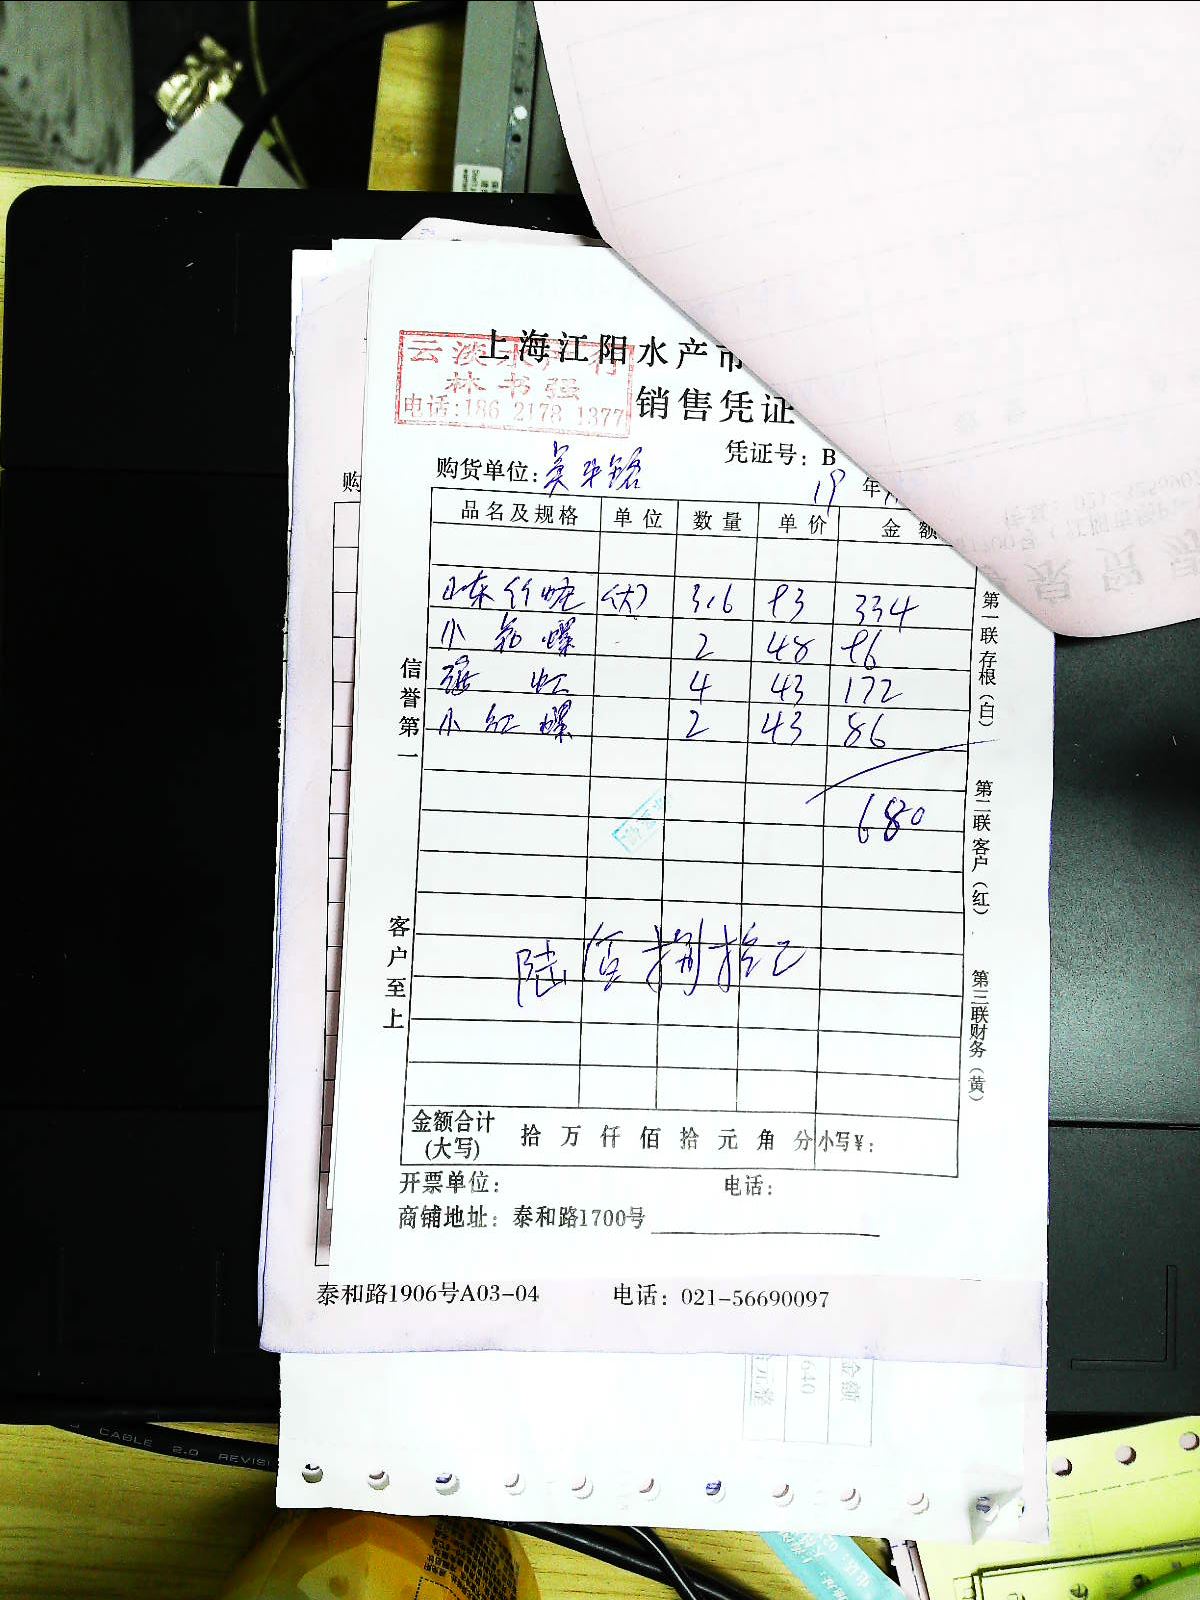 上海江阳水产市
销售凭证
云淡水产行
林书强
电话:186 2178 1377
凭证号: B
购货单位:
19 年
品名及规格 单位 数量 单价 金额
山东竹蛏 (大) 3.6 93 334
小 螺 2 48 96
4 43 172
小红螺 2 43 86
680
陆佰捌拾元
信誉第一
客户至上
第一联存根(白)
第二联客户(红)
第三联财务(黄)
金额合计(大写) 拾 万 仟 佰 拾 元 角 分 小写¥:
开票单位: 电话:
商铺地址: 泰和路1700号
购
泰和路1906号A03-04 电话: 021-56690097
金额
640
CABLE 2.0 REVISI